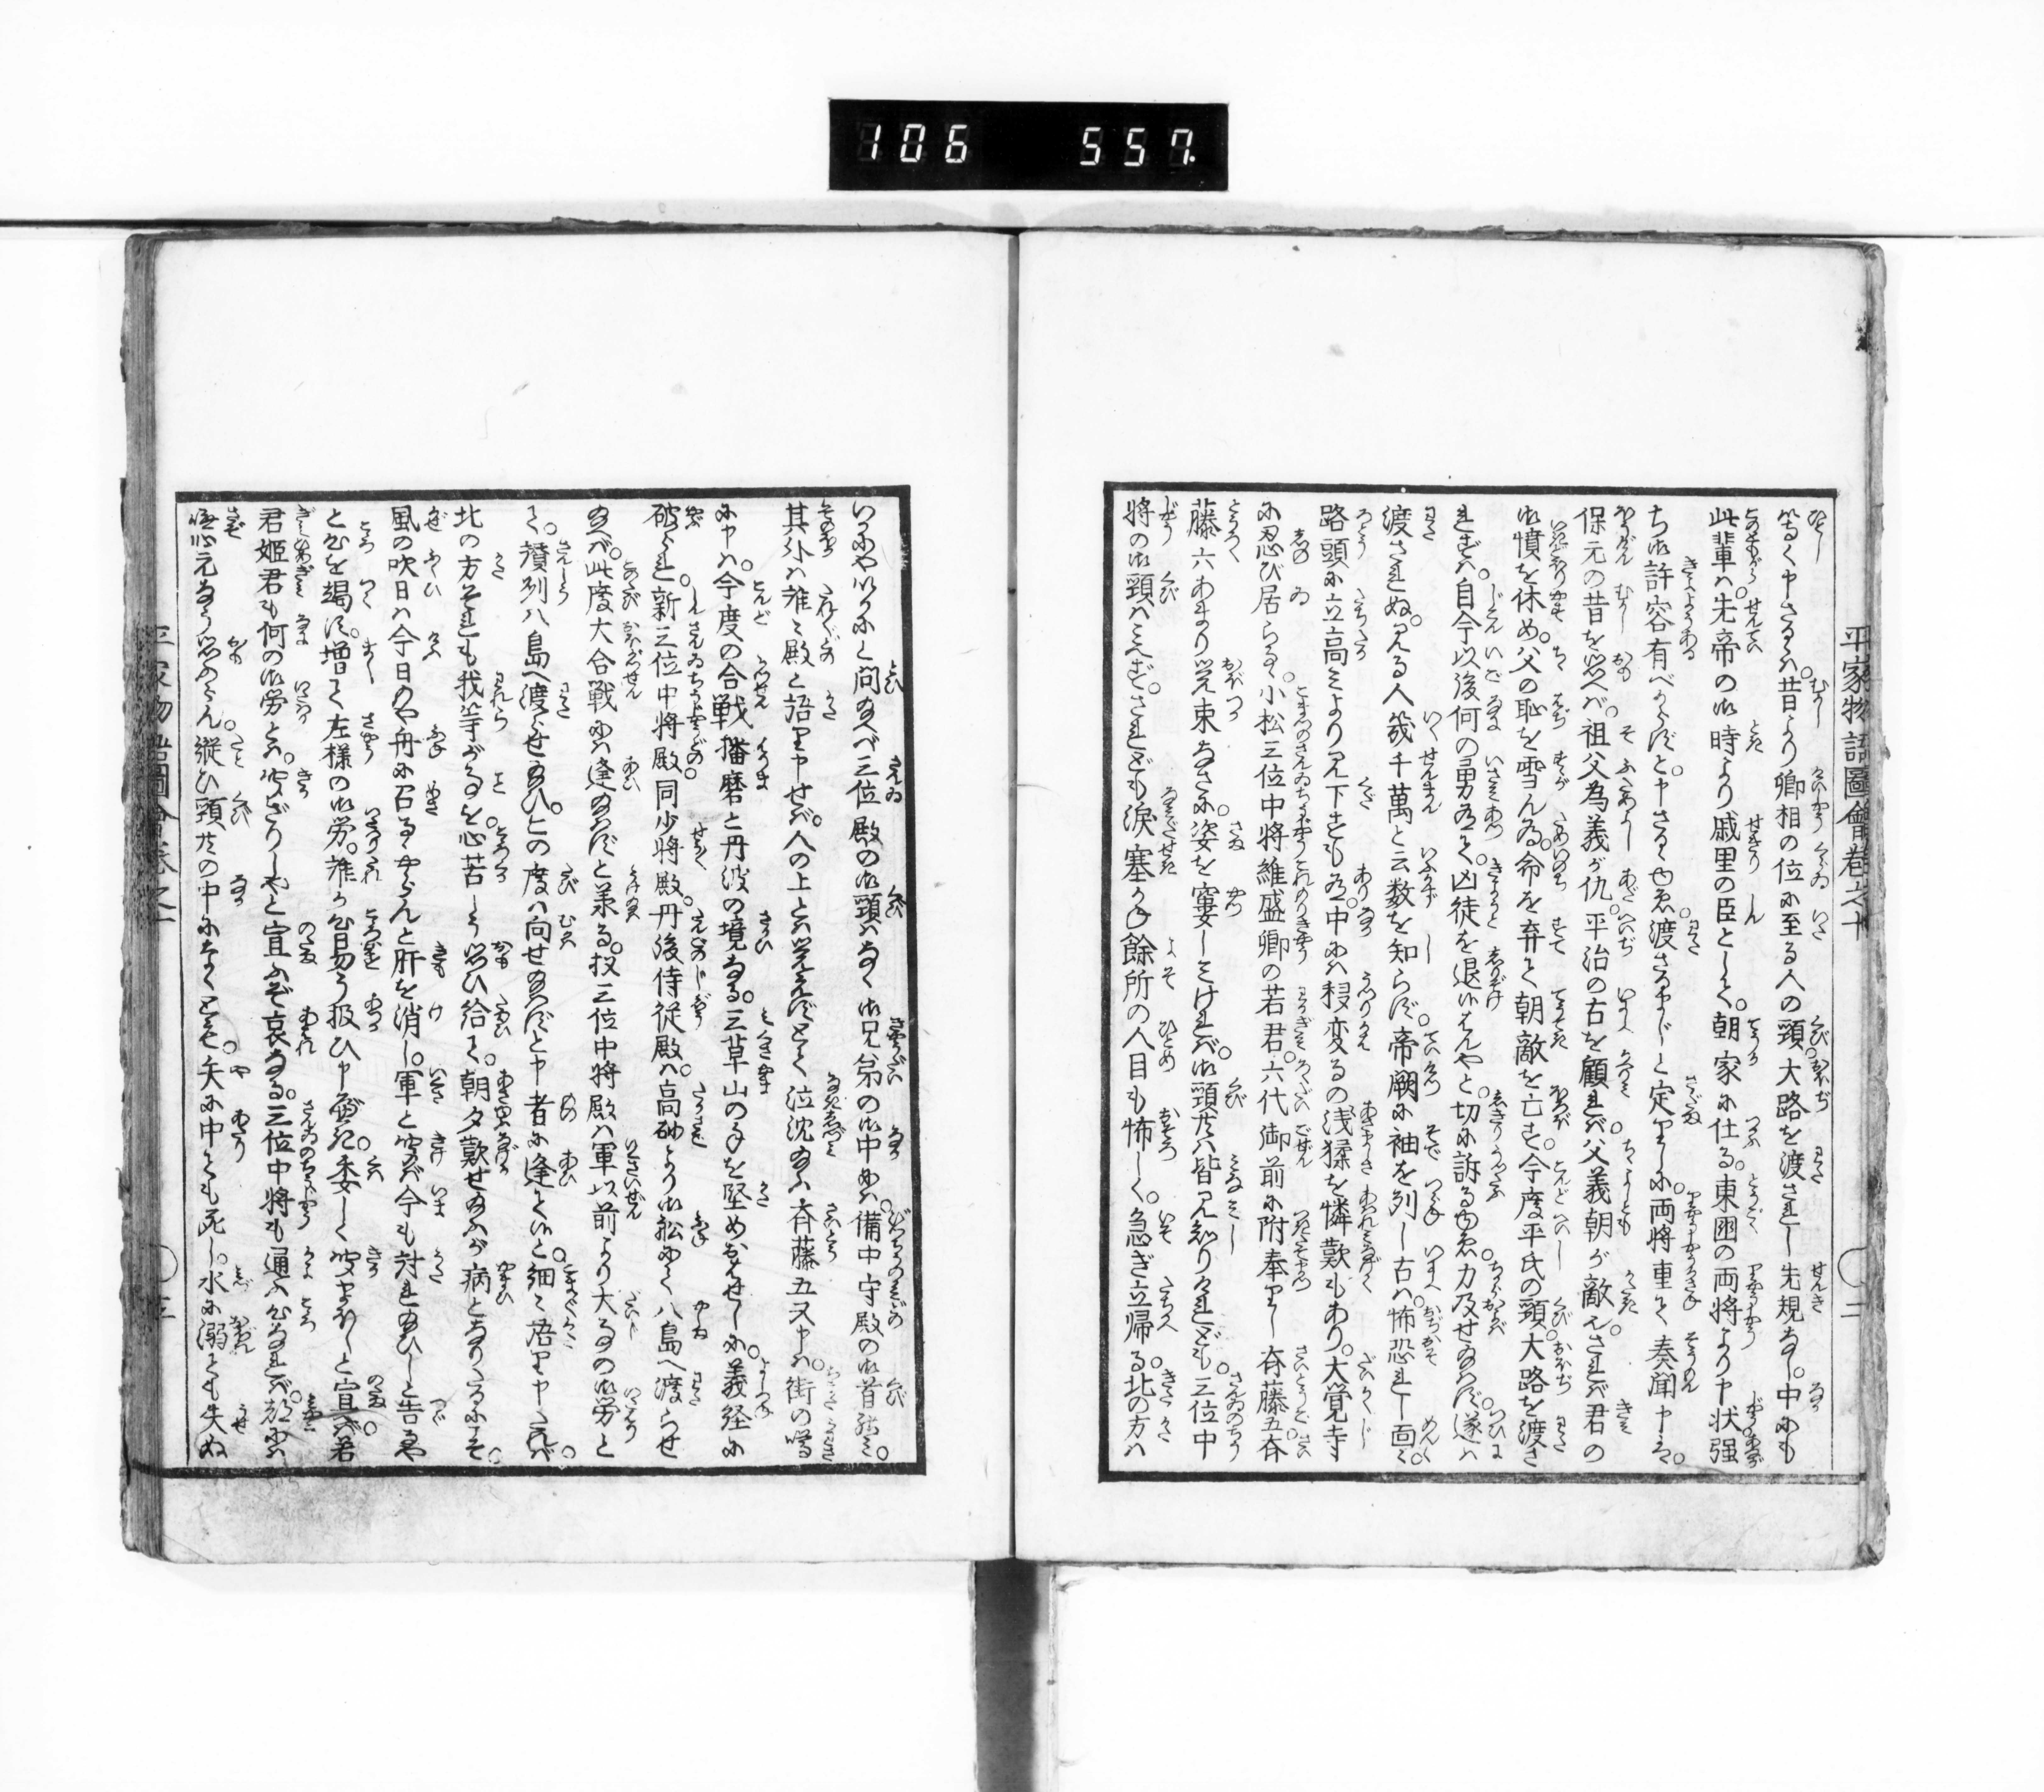 106 557
平家物語圖會巻之十
等く申さるゝは。昔より卿相の位に至る人の頸。大路を渡されし先規なし。中にも
此輩は。先帝の御時より戚里の臣として。朝家に仕る。東国の両将より申状強
ち御許容有べからずと。申さるゝ也ゑ。渡さるまじと定りしに。両将重て奏聞申るは。
保元の昔を思へば。祖父為義が仇。平治の古を顧れば。父義朝が敵也。されば君の
御憤を休め。父の恥を雪ん為。命を弃て朝敵を亡す。今度平氏の頸。大路を渡さ
れずは。自今以後何の勇有て。凶徒を退け候はんやと。切に訴るゆゑ。力及せ給はず。遂に
渡されぬ。見る人幾千萬と云数を知らず。帝闕に袖を列し古は。怖恐れし面々。
路頭に立高きより見下すも有。中には移変るの浅猿を憐歎もあり。大覚寺
に忍び居らるゝ。小松三位中将維盛卿の若君。六代御前に附奉りし斉藤五。斉
藤六あまり覚束なさに。姿を窶し見ければ。御頸共は皆見知りけれども。三位中
将の御頸は見ず。されども涙塞かね。餘所の人目も怖しく。急ぎ立帰る。北の方は
いかにやいかにと問給へば三位殿の御頸はなく御兄弟の御中には。備中守殿の御首のみ。
其外は誰々殿と語り申せば。人の上とは覚えずとて泣沈給ふ斉藤五又申は。街の噂
に申は。今度の合戦播磨と丹波の境なる。三草山の手を堅めおはせしに。義経に
破られ。新三位中将殿同少将殿。丹後侍従殿は。高砂より御舩にて八島へ渡らせ
給へば。此度大合戦には逢給はずと承る。扨三位中将殿は軍以前より大事の御労と
て。讃列八島へ渡らせ給ひ。この度は向せ給はずと申者に逢て候と。細々語り申たれば。
北の方それも我等が事を。心苦しう思ひ給て。朝夕歎せ給ふが病となりたるにこそ。
風の吹日は今日もや舟に召るらんと肝を消し。軍と聞ば今も討れ給ひしと告るや
と心を竭ず。増て左様の御労。誰か心易う扱ひ申べき。委しく聞まほしと宣ば若
君姫君も何の御労とは。聞ざりしやと宣ふぞ哀なる。三位中将も通ふ心なれば。都には
元なう思のらん。縦ひ頸共の中になくとも。矢に中ても死し。水に溺ても失ぬ